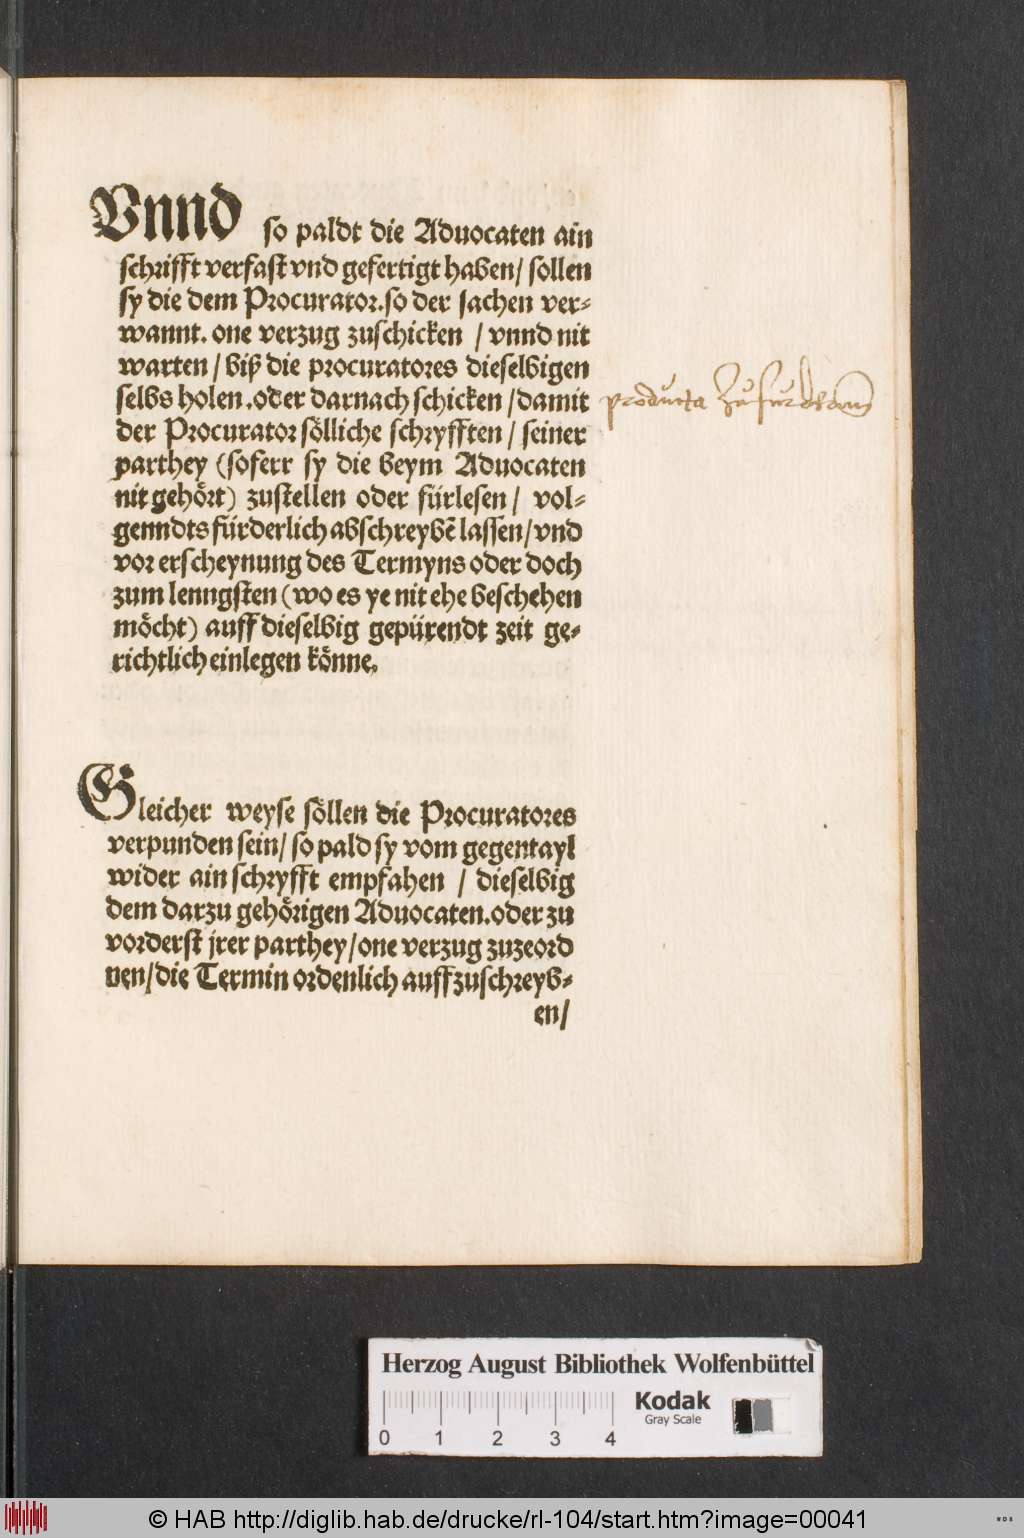 Vnnd so paldt die Aduocaten ain
schrifft verfast vnd gefertigt haben/ sollen
sy die dem Procurator.so der sachen ver-
wannt. one verzug zuschicken / vnnd nit
warten / biß die procuratores dieselbigen
selbs holen.oder darnach schicken / damit
producta zufurdhann
der Procurator sölliche schryfften / seiner
parthey (soferr sy die beym Aduocaten
nit gehört) zustellen oder fürlesen / vol-
genndts fürderlich abschreybẽ lassen/ vnd
vor erscheynung des Termyns oder doch
zum lenngsten (wo es ye nit ehe beschehen
möcht) auff dieselbig gepürendt zeit ge-
richtlich einlegen könne.
Gleicher weyse söllen die Procuratores
verpunden sein/ so pald sy vom gegentayl
wider ain schryfft empfahen / dieselbig
dem darzu gehörigen Aduocaten.oder zu
vorderst jrer parthey/ one verzug zuzeord
nen/ die Termin ordenlich auffzuschreyb-
en/
Herzog August Bibliothek Wolfenbüttel
Kodak
Gray Scale
0 1 2 3 4
© HAB http://diglib.hab.de/drucke/rl-104/start.htm?image=00041